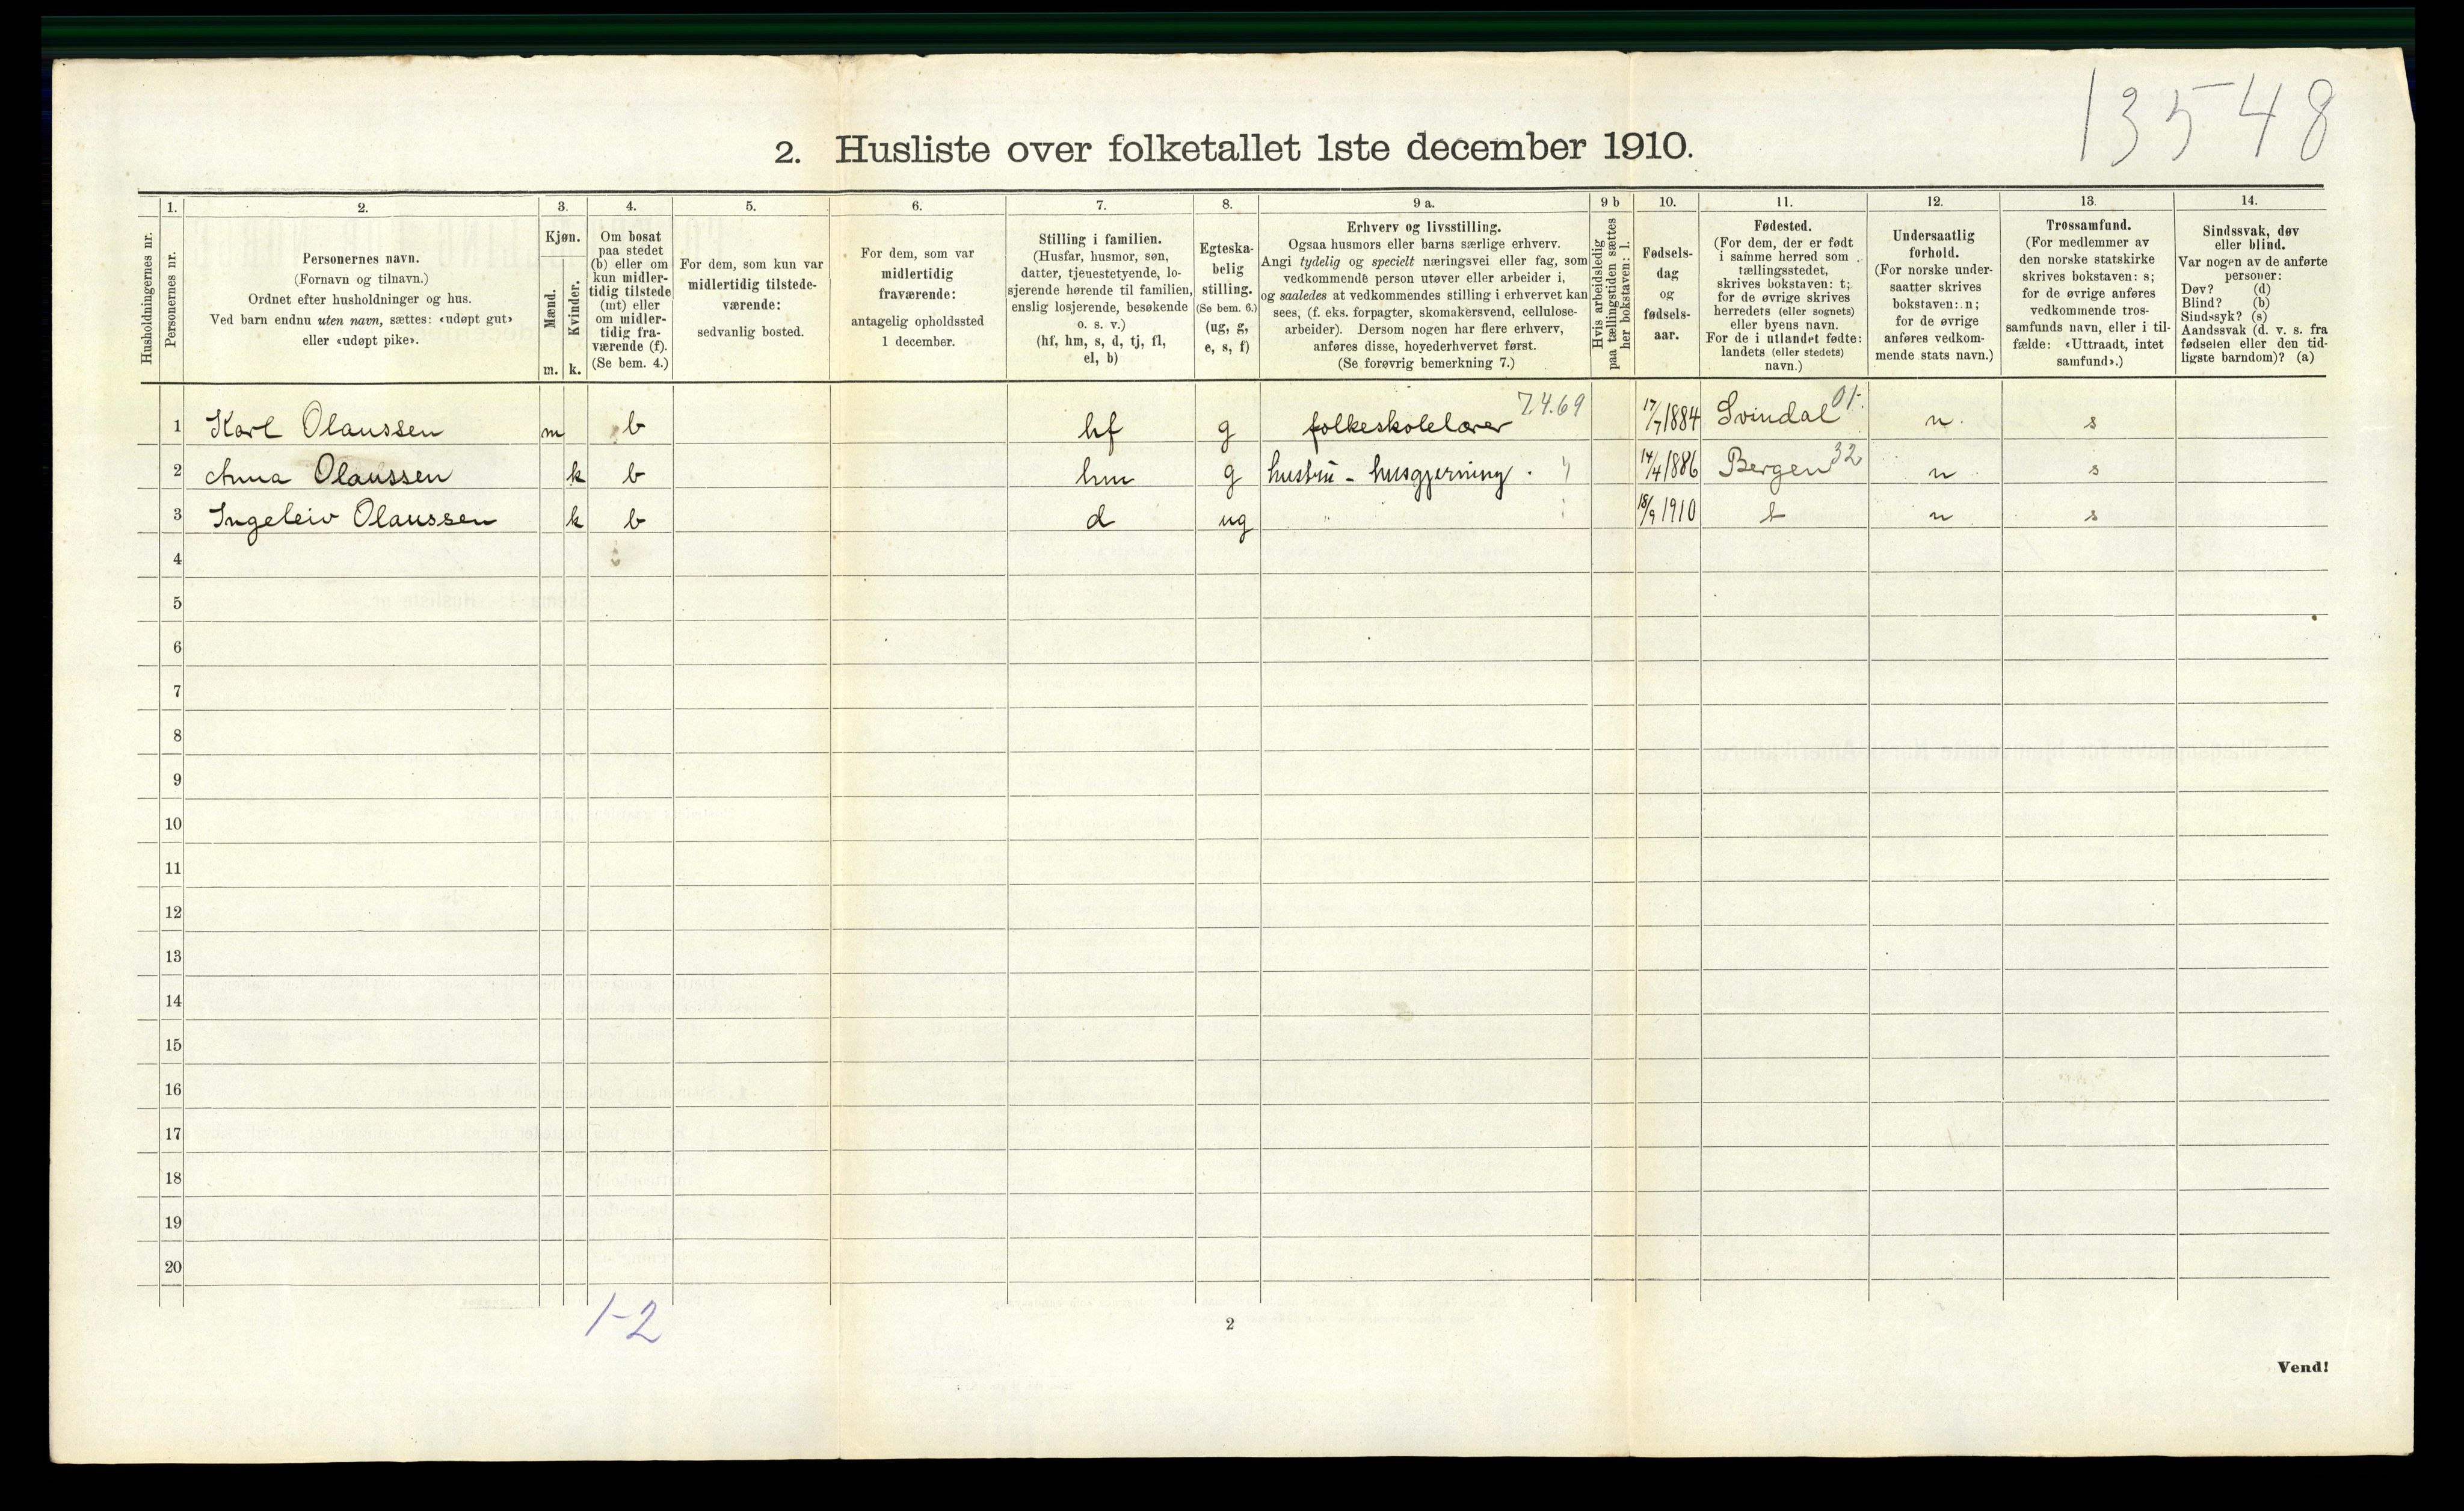 13548
2. Husliste over folketallet 1ste december 1910.
Husholdningernes nr.
1.
Personernes nr.
2.
Personernes navn.
(Fornavn og tilnavn.)
Ordnet efter husholdninger og hus.
Ved barn endnu uten navn, sættes: «udøpt gut»
eller «udøpt pike».
3.
Kjøn.
Mænd.
Kvinder.
m. k.
4.
Om bosat
paa stedet
(b) eller om
kun midler-
tidig tilstede
(mt) eller
om midler-
tidig fra-
værende (f).
(Se bem. 4.)
5.
For dem, som kun var
midlertidig tilstede-
værende:
sedvanlig bosted.
6.
For dem, som var
midlertidig
fraværende:
antagelig opholdssted
1 december.
7.
Stilling i familien.
(Husfar, husmor, søn,
datter, tjenestetyende, lo-
sjerende hørende til familien,
enslig losjerende, besøkende
o. s. v.)
(hf, hm, s, d, tj, fl,
el, b)
8.
Egteska-
belig
stilling.
(Se bem. 6.)
(ug, g,
e, s, f)
9 a.
Erhverv og livsstilling.
Ogsaa husmors eller barns særlige erhverv.
Angi tydelig og specielt næringsvei eller fag, som
vedkommende person utøver eller arbeider i,
og saaledes at vedkommendes stilling i erhvervet kan
sees, (f. eks. forpagter, skomakersvend, cellulose-
arbeider). Dersom nogen har flere erhverv,
anføres disse, hovederhvervet først.
(Se forøvrig bemerkning 7.)
9 b
Hvis arbeidsledig
paa tællingstiden sættes
her bokstaven: l.
10.
Fødsels-
dag
og
fødsels-
aar.
11.
Fødested.
(For dem, der er født
i samme herred som
tællingsstedet,
skrives bokstaven: t;
for de øvrige skrives
herredets (eller sognets)
eller byens navn.
For de i utlandet fødte:
landets (eller stedets)
navn.)
12.
Undersaatlig
forhold.
(For norske under-
saatter skrives
bokstaven: n;
for de øvrige
anføres vedkom-
mende stats navn.)
13.
Trossamfund.
(For medlemmer av
den norske statskirke
skrives bokstaven: s;
for de øvrige anføres
vedkommende tros-
samfunds navn, eller i til-
fælde: «Uttraadt, intet
samfund».)
14.
Sindssvak, døv
eller blind.
Var nogen av de anførte
personer:
Døv? (d)
Blind? (b)
Sindssyk? (s)
Aandssvak (d. v. s. fra
fødselen eller den tid-
ligste barndom)? (a)
1 Karl Olaussen m b hf g folkeskolelærer 7.4.69 17/7 1884 Svindal 01. n. s
2 Anna Olaussen k b hm g hustru - husgjerning. 14/4 1886 Bergen 32 n s
3 Ingeleiv Olaussen k b d ug 18/9 1910 t n s
4
5
6
7
8
9
10
11
12
13
14
15
16
17
18
19
20
1-2
2
Vend!